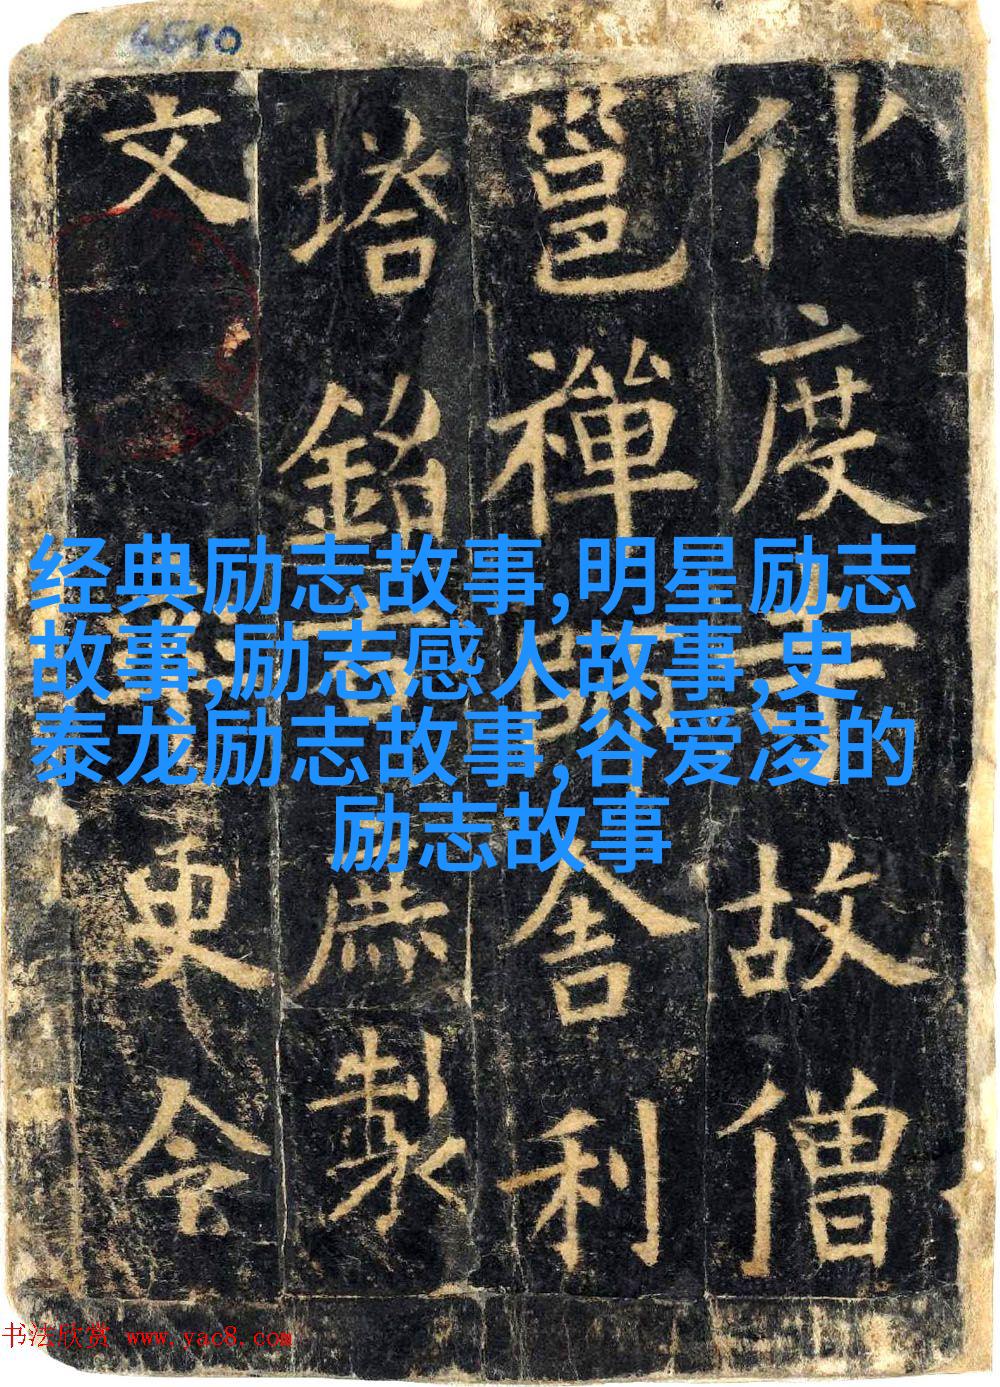 化度寺故僧
邕禪師舍利
塔銘右庶製
文率更令
经典励志故事,明星励志
故事,励志感人故事,史
泰龙励志故事,谷爱凌的
励志故事
书法欣赏 www.yac8.com